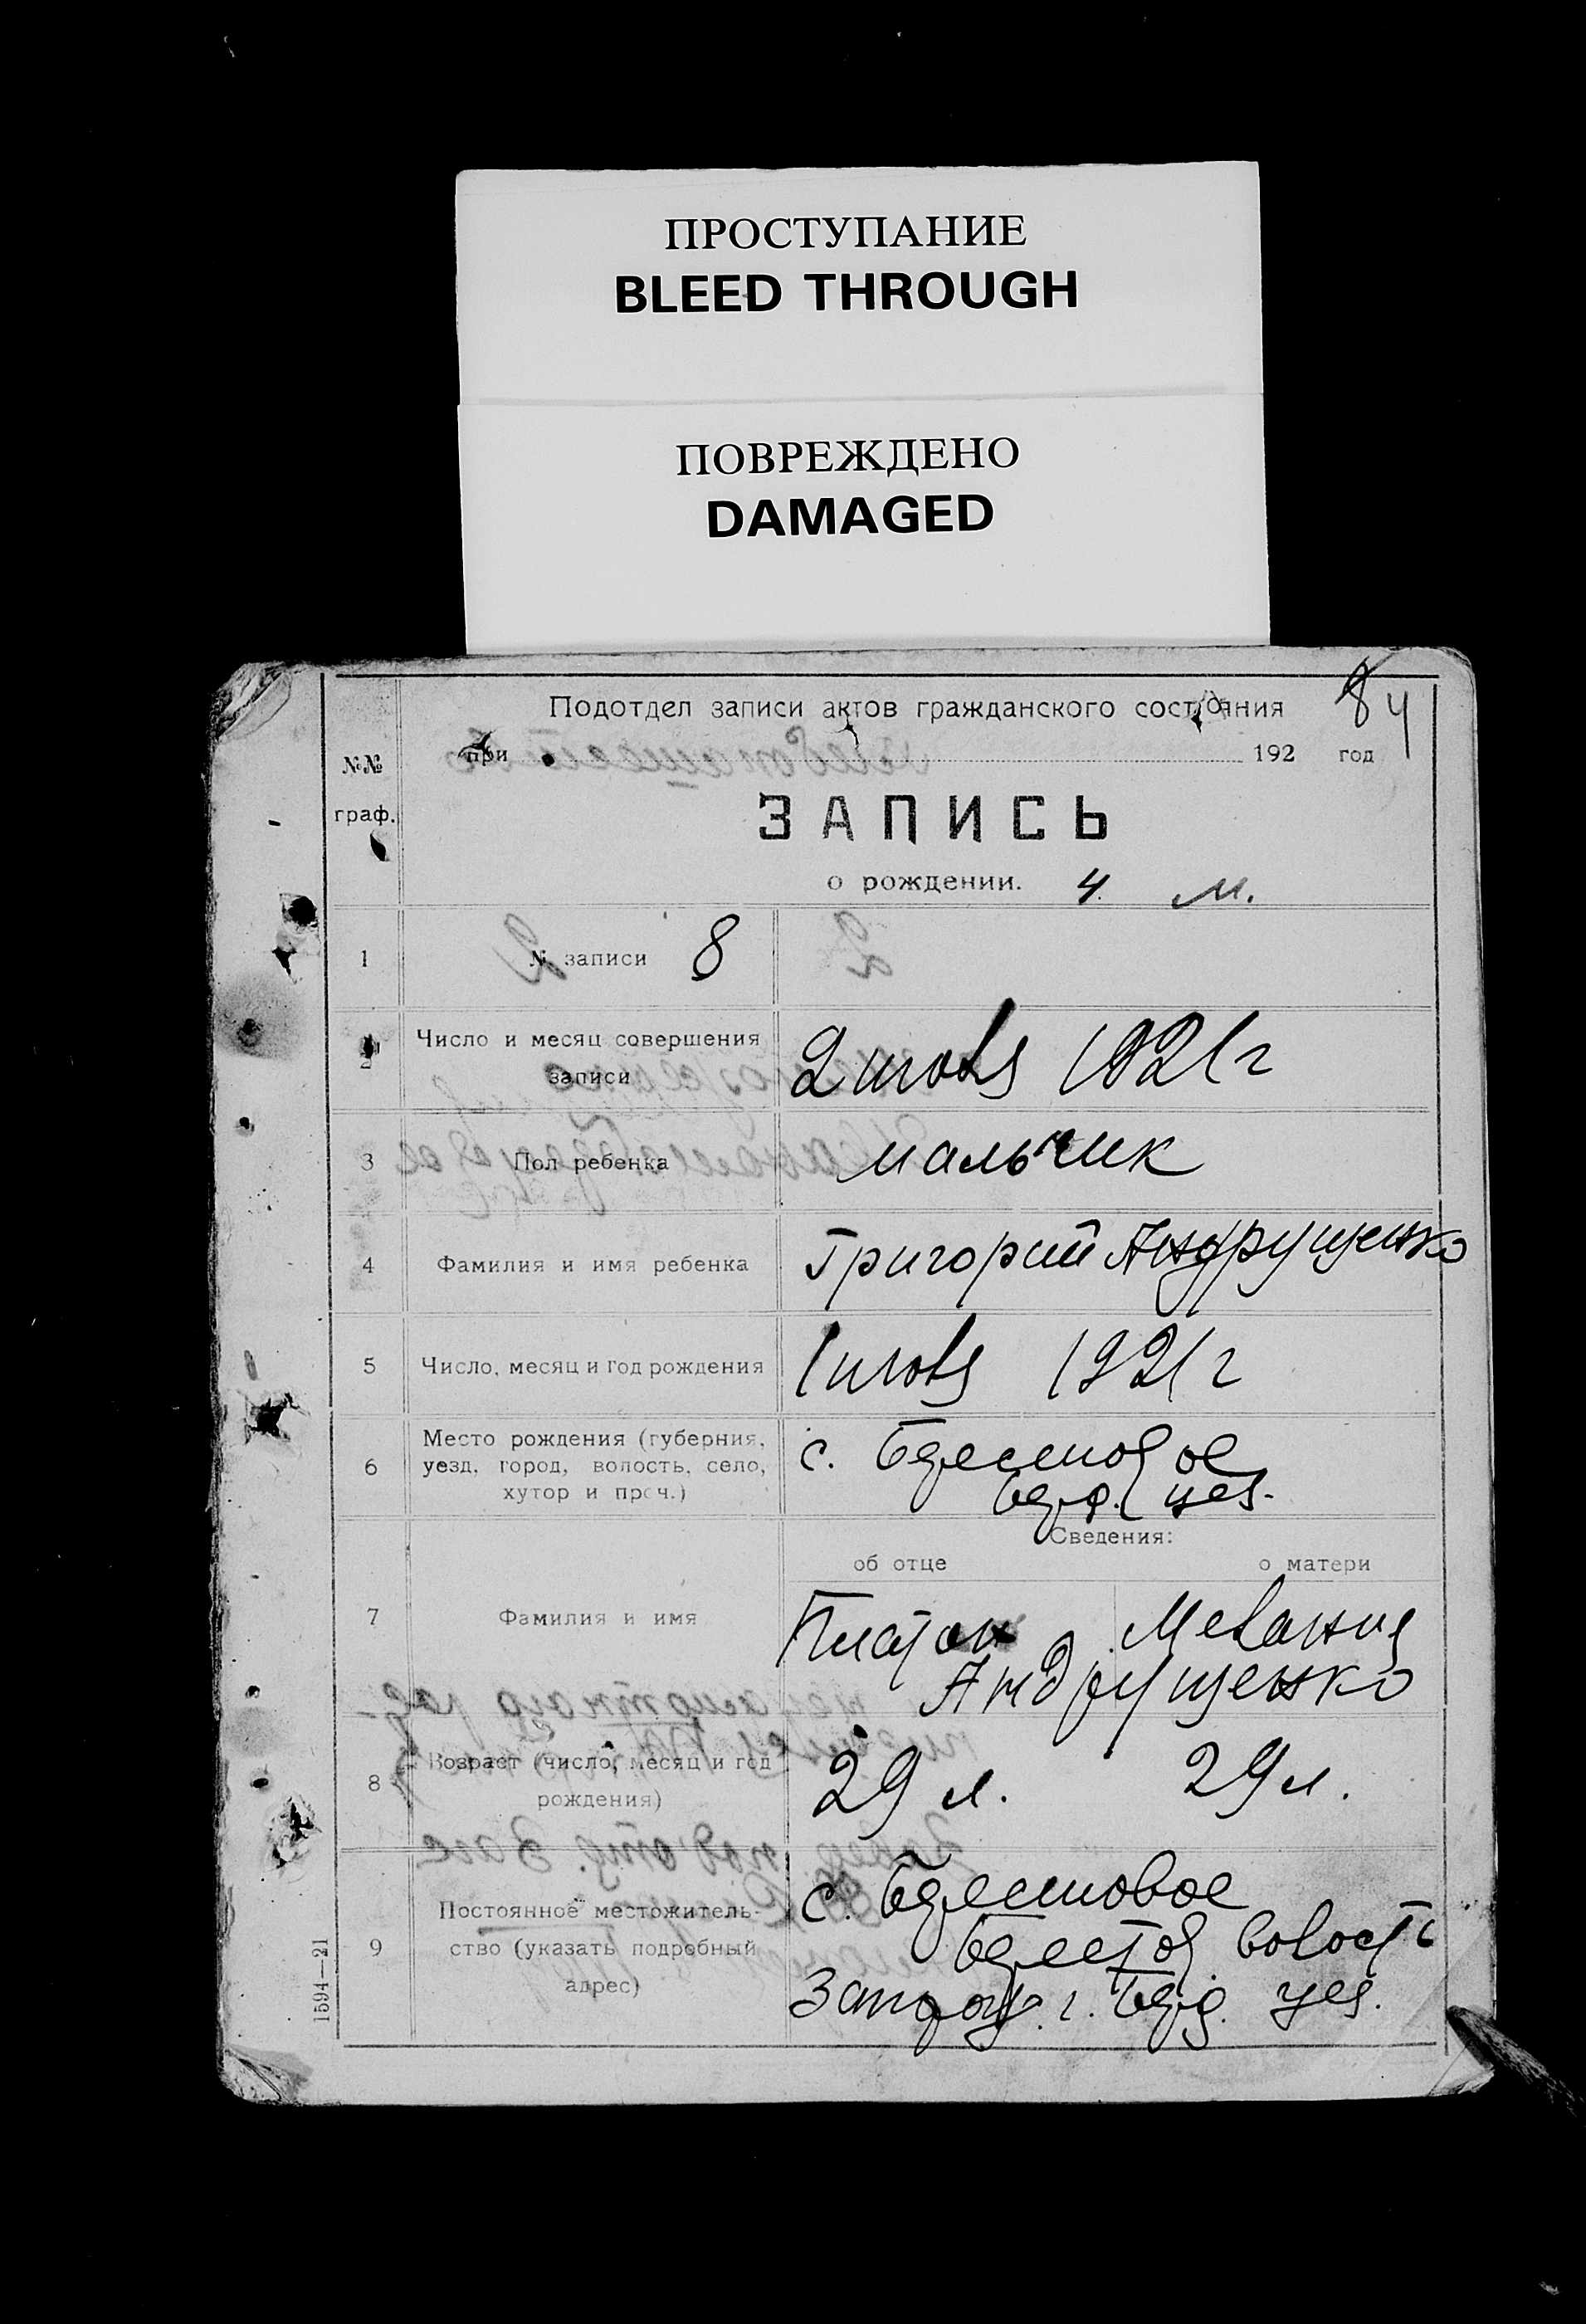 ПРОСТУПАНИЕ
BLEED THROUGH
ПОВРЕЖДЕНО
DAMAGED
84
Подотдел записи актов гражданского состояния
при 192 год
№№
граф.
ЗАПИСЬ
о рождении. 4. м.
1 № записи 8
2 Число и месяц совершения
записи
2 июля 1921 г
3 Пол ребенка мальчик
4 Фамилия и имя ребенка Григорий Андрущенко
5 Число, месяц и год рождения 1 июля 1921 г
6 Место рождения (губерния,
уезд, город, волость, село,
хутор и проч.)
с.
уез.
Сведения:
об отце о матери
7 Фамилия и имя
Платон Мелания
Андрущенко
8 Возраст (число, месяц и год
рождения)
29 л. 29 л.
9 Постоянное местожитель-
ство (указать подробный
адрес)
с.
волость
Запорож. г. уез.
1594—21